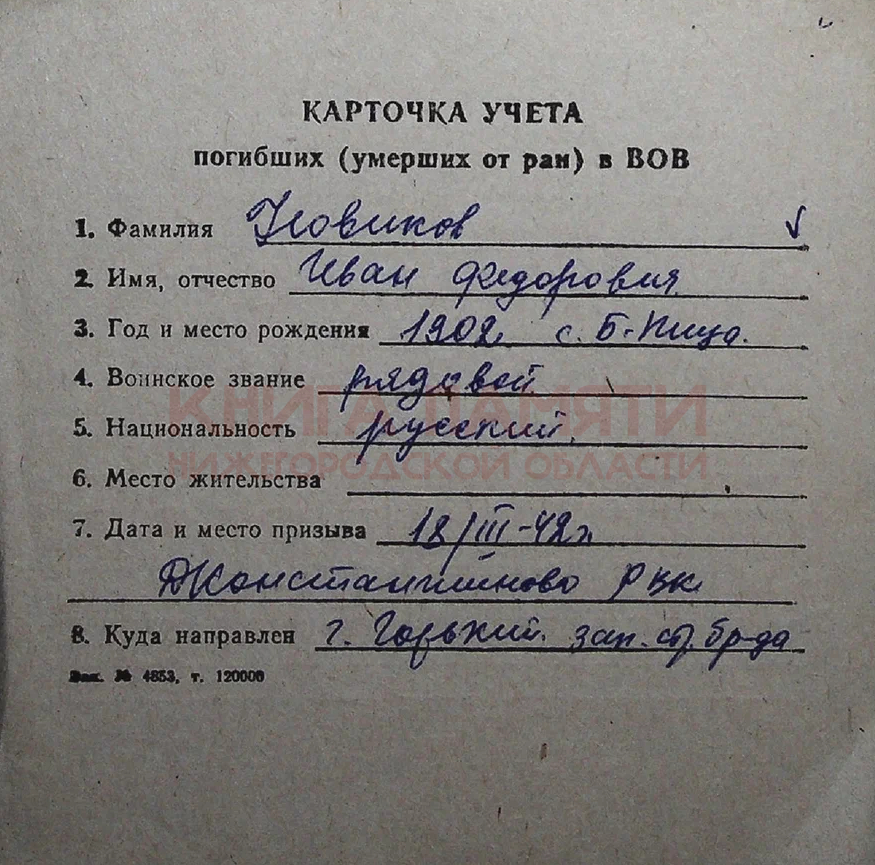 КАРТОЧКА УЧЕТА
погибших (умерших от ран) в ВОВ
1. Фамилия Новиков
2. Имя, отчество Иван Федорович
3. Год и место рождения 1902 с. Б-Пица.
4. Воинское звание рядовой
5. Национальность русский.
КНИГА ПАМЯТИ
НИЖЕГОРОДСКОЙ ОБЛАСТИ
6. Место жительства
7. Дата и место призыва 18/III-42г
ДКонстантиново РВК
8. Куда направлен г. Горький. зап. стр. бр-да
Зак. № 4853, т. 120000